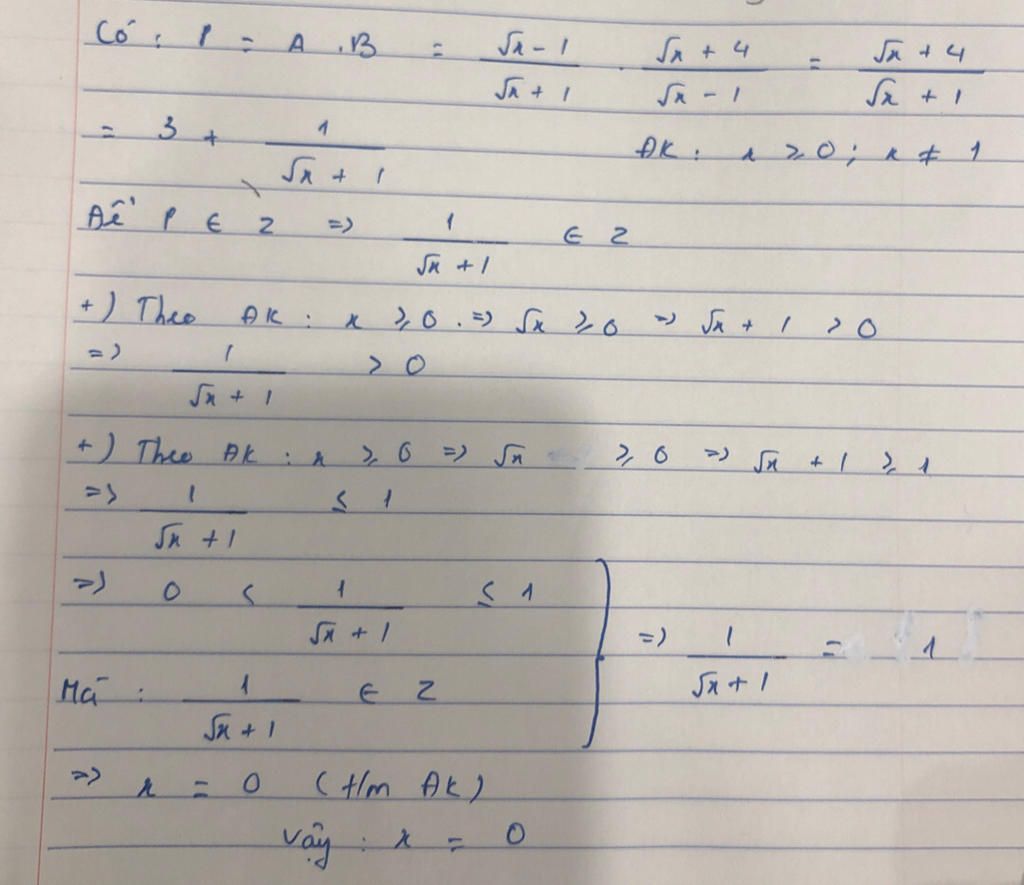 Có : P = A . B = (√x - 1)/(√x + 1) . (√x + 4)/(√x - 1) = (√x + 4)/(√x + 1)
= 3 + 1/(√x + 1) ĐK : x ≥ 0 ; x ≠ 1
Để P ∈ Z => 1/(√x + 1) ∈ Z
+) Theo ĐK : x ≥ 0 . => √x ≥ 0 => √x + 1 > 0
=> 1/(√x + 1) > 0
+) Theo ĐK : x ≥ 0 => √x ≥ 0 => √x + 1 ≥ 1
=> 1/(√x + 1) ≤ 1
=> 0 < 1/(√x + 1) ≤ 1
Mà : 1/(√x + 1) ∈ Z
=> 1/(√x + 1) = 1
=> x = 0 (t/m ĐK)
Vậy : x = 0